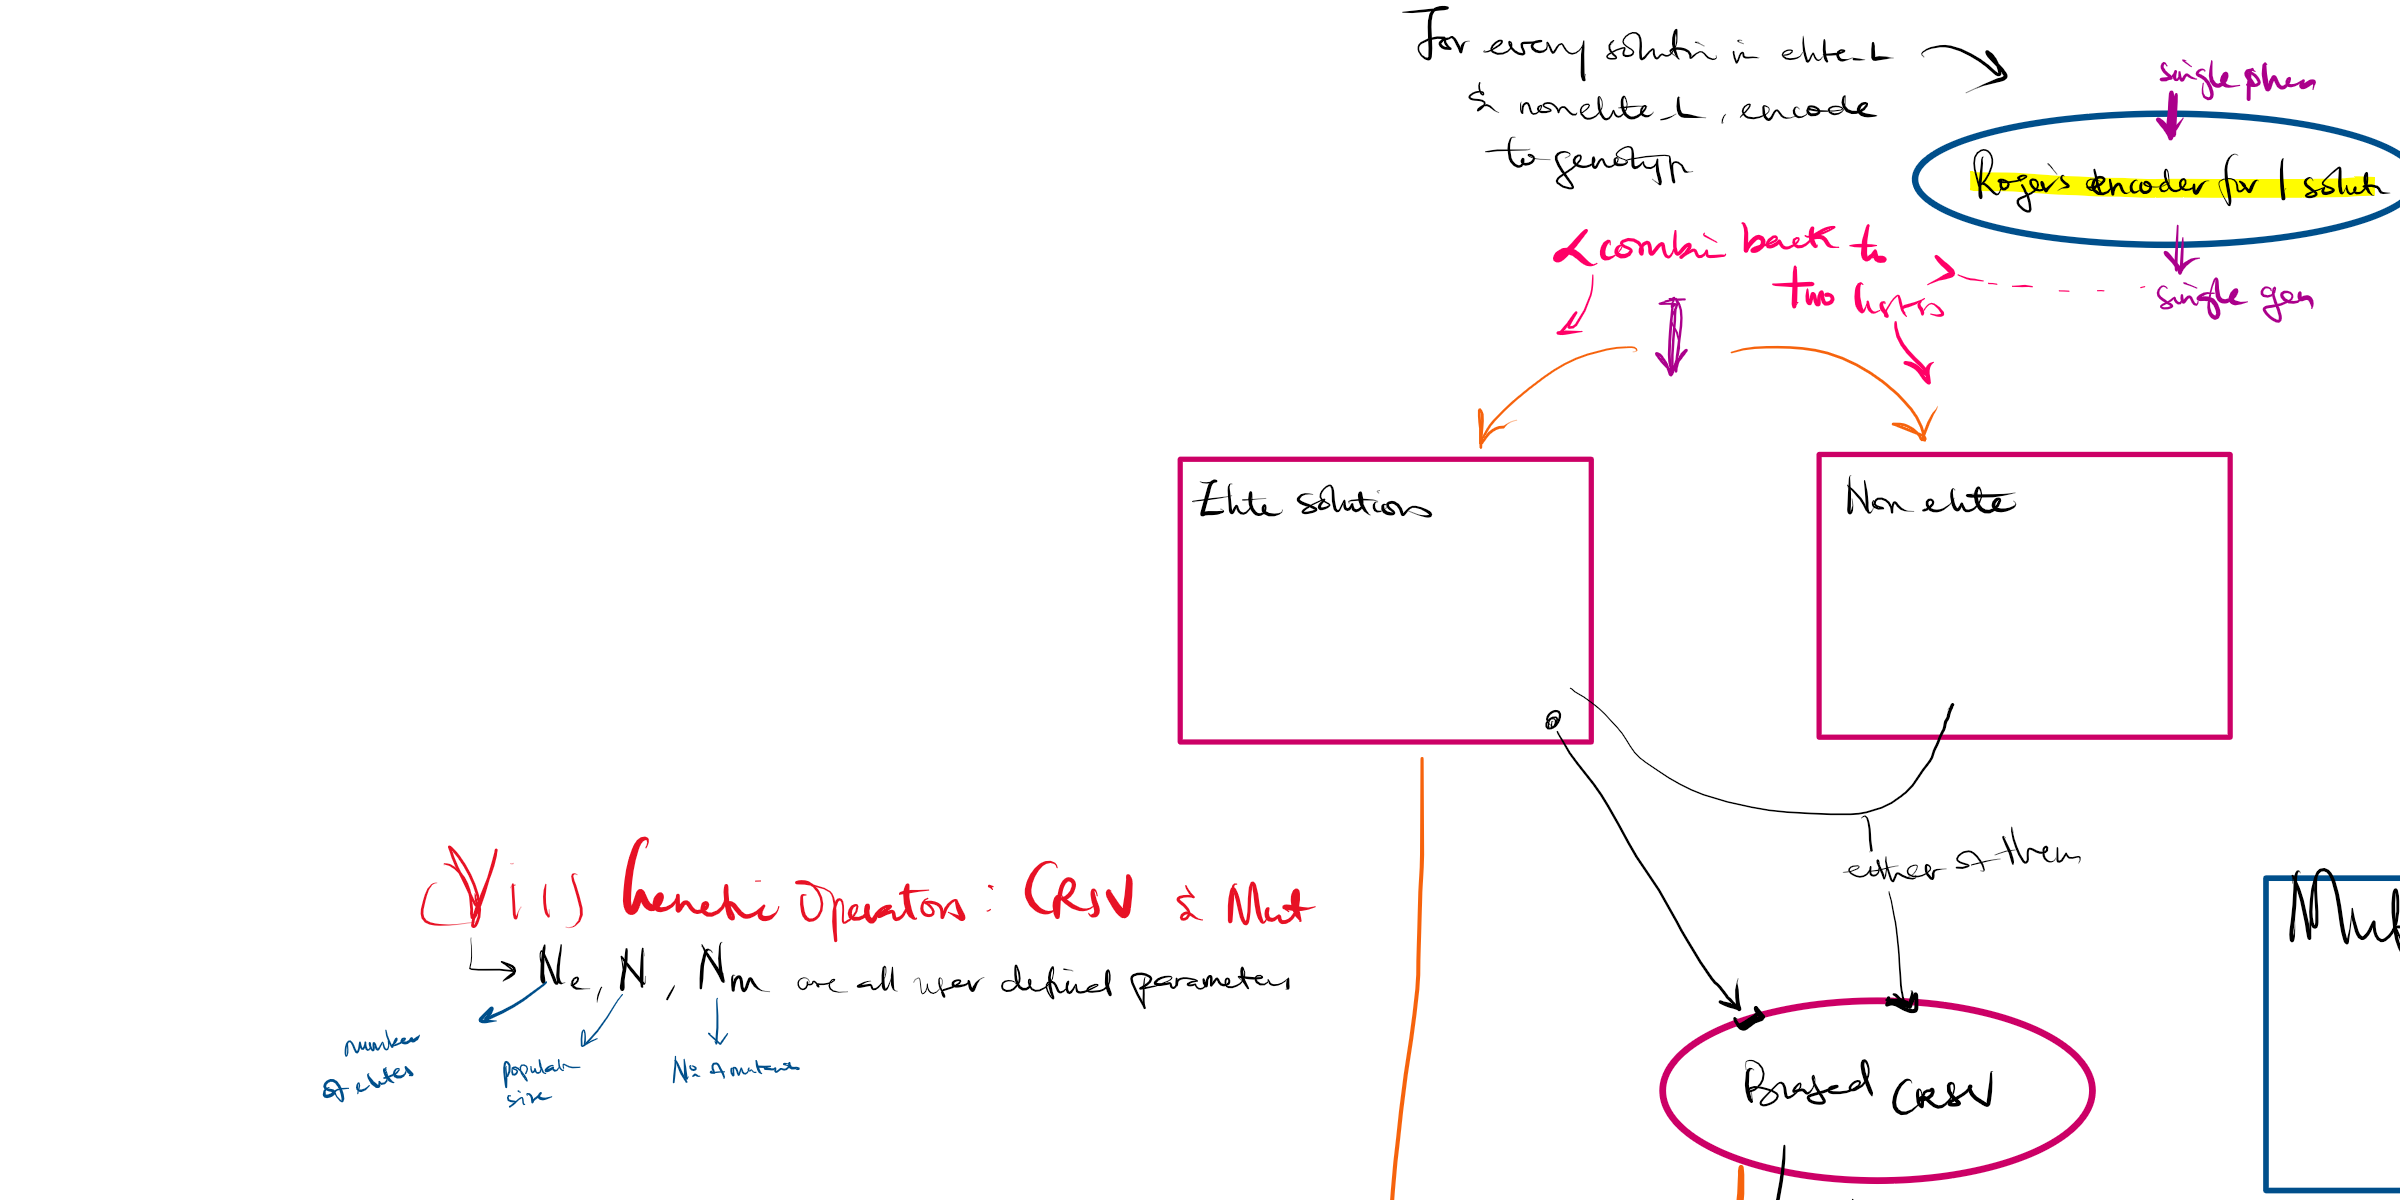 For every solutin in elite_L
& nonelite_L, encode
to genotyp
single phen
Roger's encoder for 1 solutn
single gen
& combi back to
two lists
Elite solutions
Non elite
either of them
(Vii) Genetic Operators: CRSV & Mut
Ne, N, Nm are all user defined parameters
number
of elites
populatn
size
No of mutants
Biased CRSV
Mut